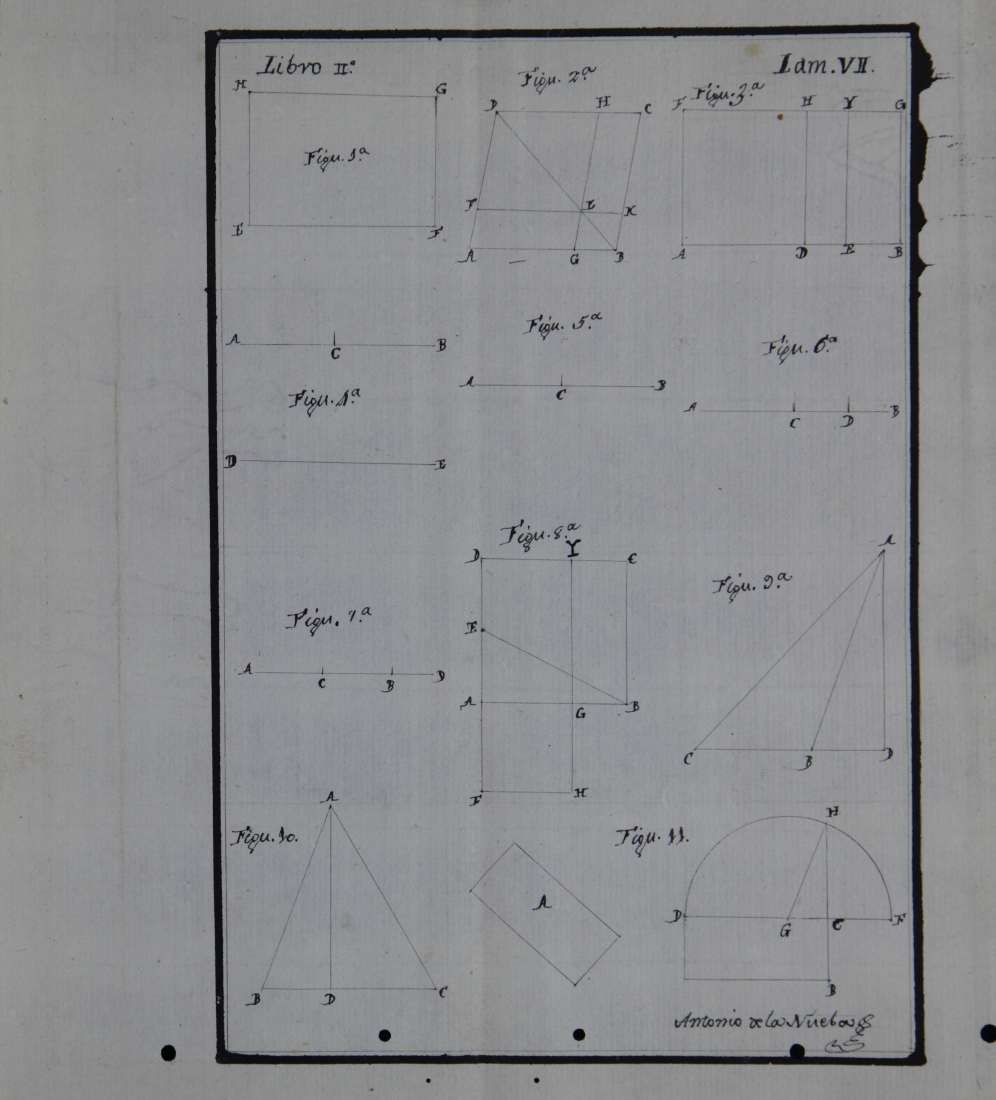 Libro II.º
Lam. VII.
Figu. 1.ª
H G
E F
Figu. 2.ª
D H C
F E K
A G B
Figu. 3.ª
F H Y G
A D E B
A C B
Figu. 4.ª
D E
Figu. 5.ª
A C B
Figu. 6.ª
A C D B
Figu. 7.ª
A C B D
Figu. 8.ª
D Y C
E
A G B
F H
Figu. 9.ª
A
C B D
Figu. 10.
A
B D C
A
Figu. 11.
H
D G C F
B
Antonio de la